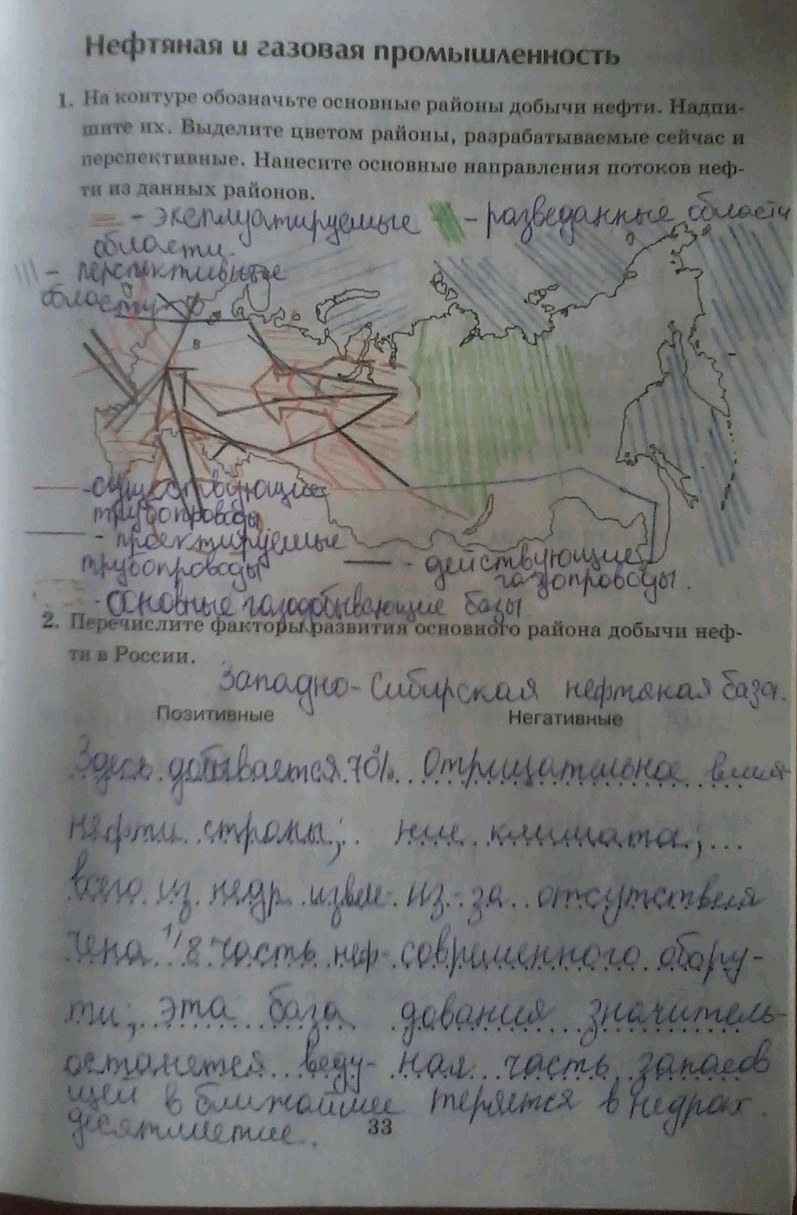 Нефтяная и газовая промышленность
1. На контуре обозначьте основные районы добычи нефти. Надпи-
шите их. Выделите цветом районы, разрабатываемые сейчас и
перспективные. Нанесите основные направления потоков неф-
ти из данных районов.
- эксплуатируемые области
- разведанные области
- перспективные области
- существующие трубопроводы
- проектируемые трубопроводы
- действующие газопроводы.
- основные газодобывающие базы
2. Перечислите факторы развития основного района добычи неф-
ти в России.
Западно-Сибирская нефтяная база.
Позитивные
Здесь добывается 70%
нефти страны;
всего из недр извле-
чена 1/8 часть неф-
ти; эта база
останется веду-
щей в ближайшее
десятилетие.
Негативные
Отрицательное влия-
ние климата;
из-за отсутствия
современного обору-
дования значитель-
ная часть запасов
теряется в недрах.
33